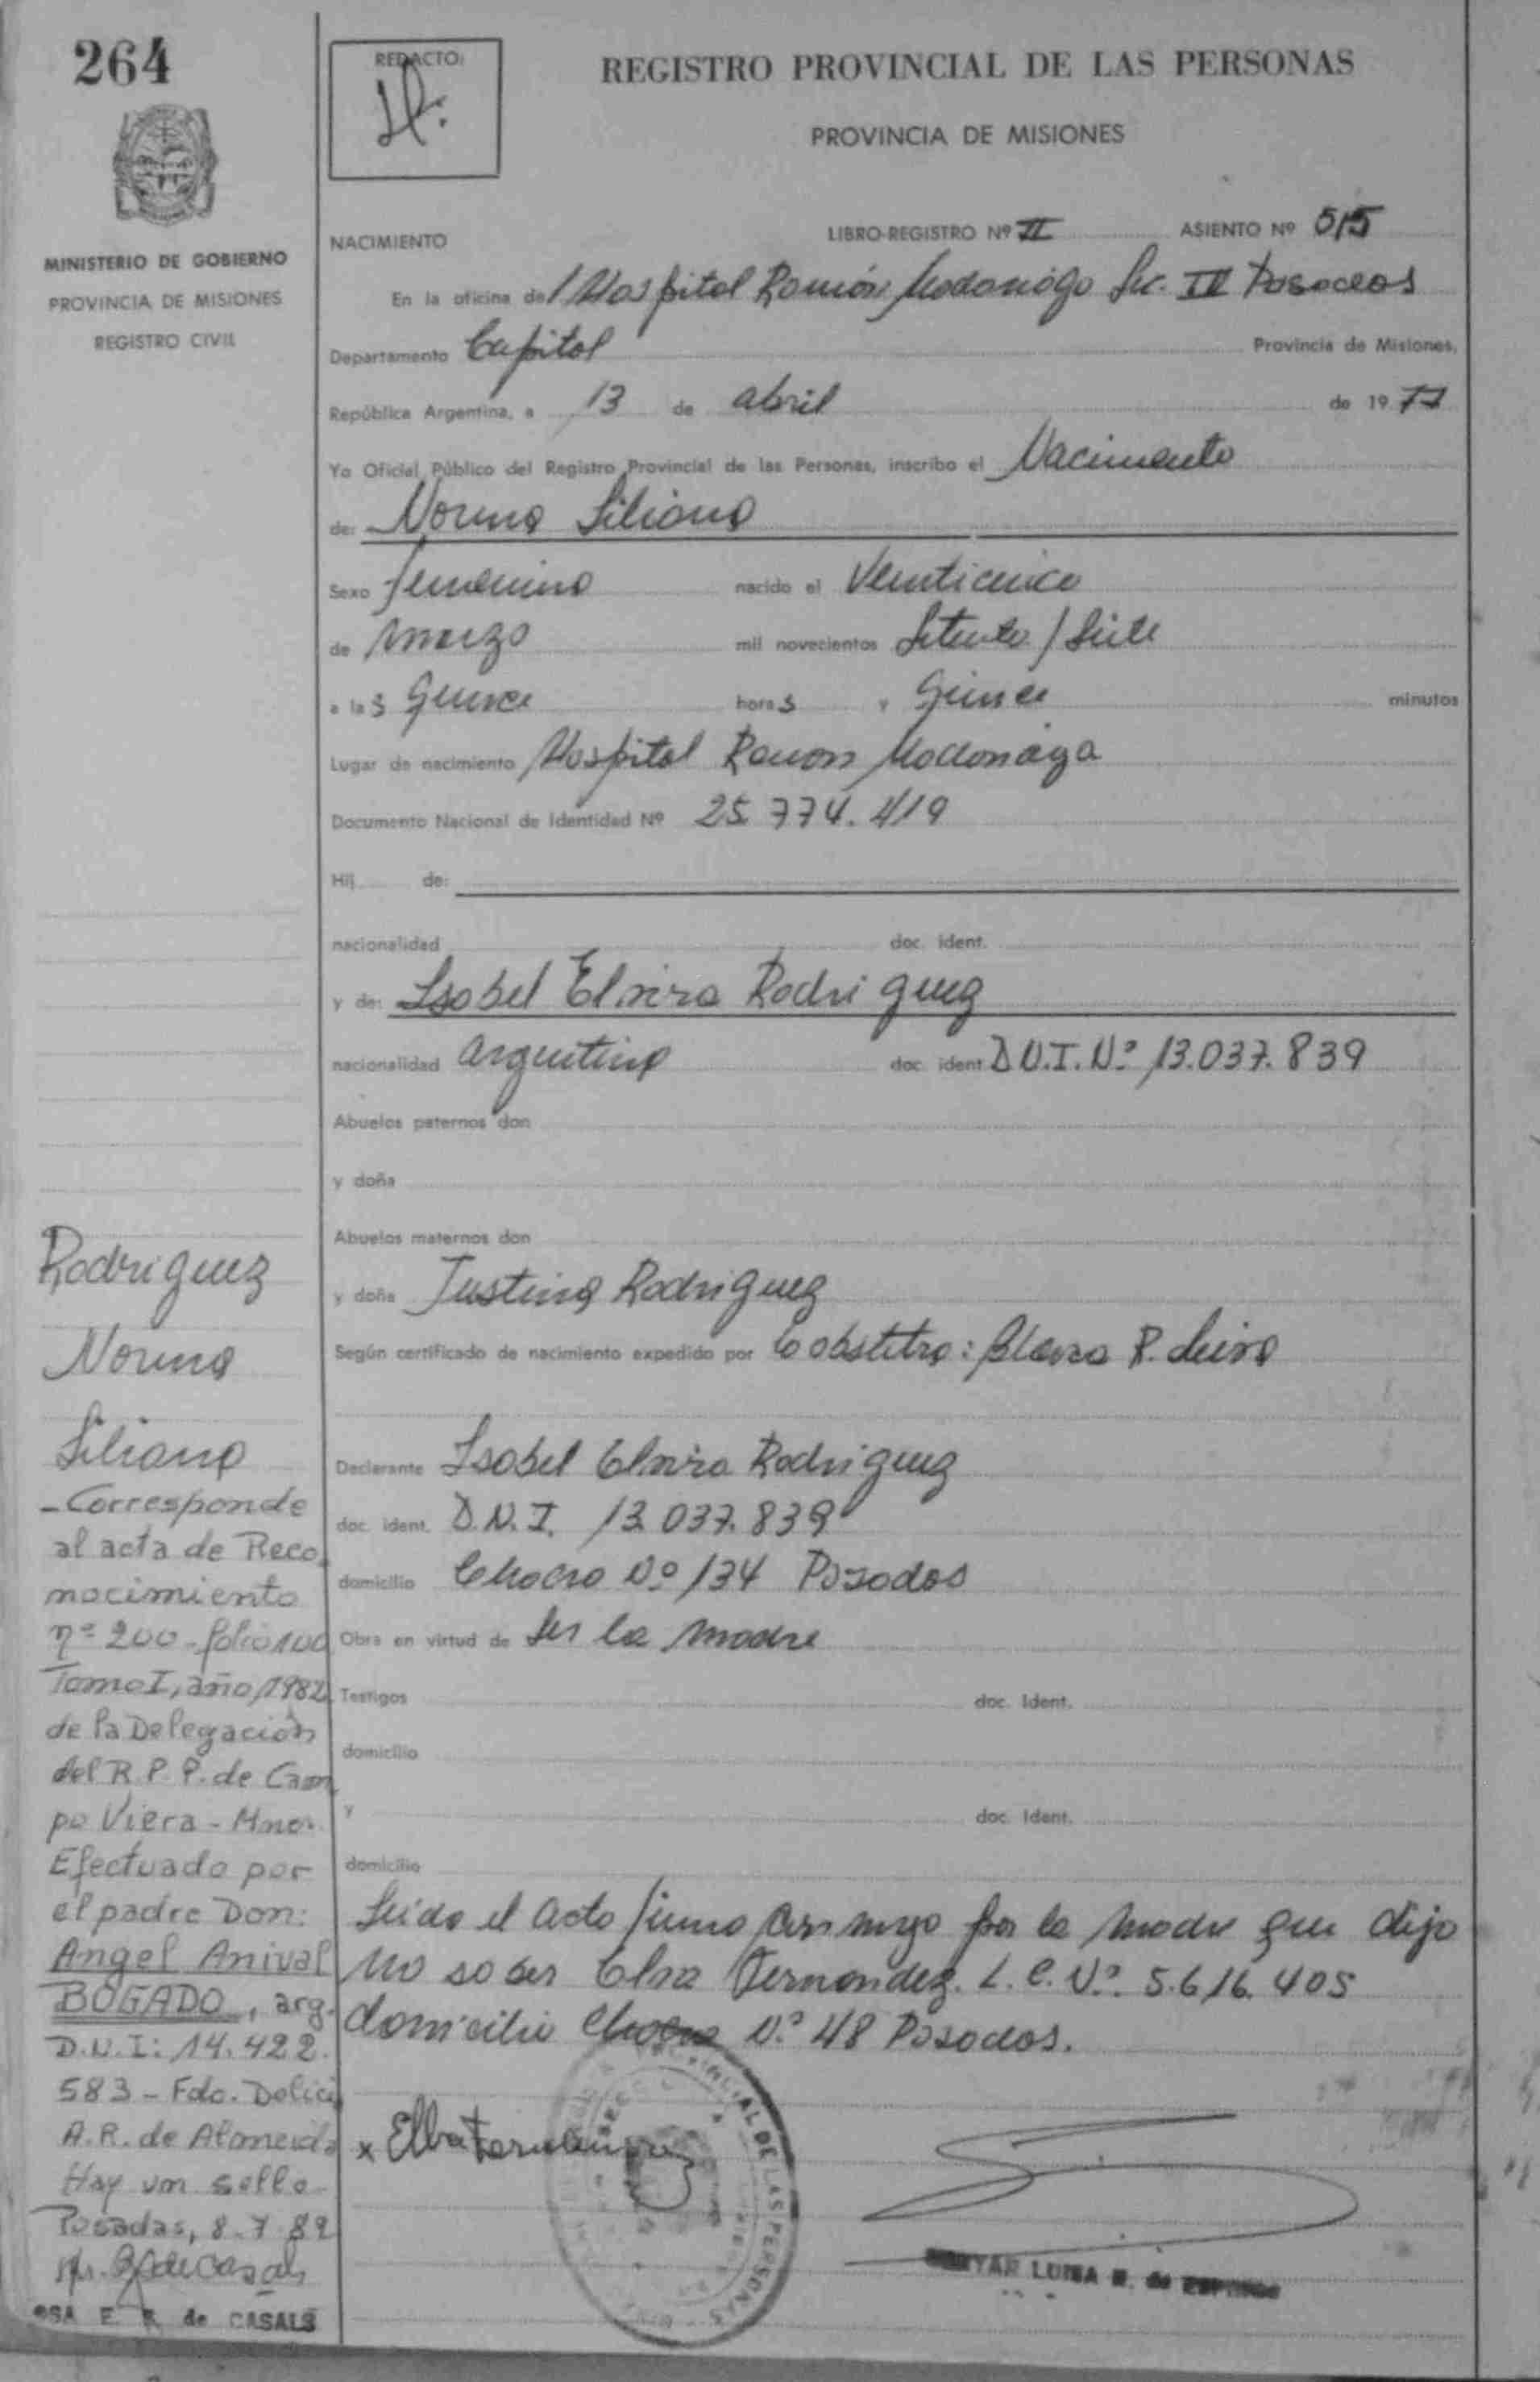 264
REDACTO:
REGISTRO PROVINCIAL DE LAS PERSONAS
PROVINCIA DE MISIONES
MINISTERIO DE GOBIERNO
PROVINCIA DE MISIONES
REGISTRO CIVIL
NACIMIENTO
LIBRO-REGISTRO Nº II ASIENTO Nº 515
En la oficina del Hospital Ramón Madariaga Sec. III Posadas
Departamento Capital Provincia de Misiones,
República Argentina, a 13 de abril de 1977
Yo Oficial Público del Registro Provincial de las Personas, inscribo el Nacimiento
de: Norma Liliana
Sexo femenino nacido el Veinticinco
de marzo mil novecientos Setenta / Siete
a las quince horas y Quince minutos
Lugar de nacimiento Hospital Ramon Madariaga
Documento Nacional de Identidad Nº 25.774.419
Hij de:
nacionalidad doc. ident.
y de: Isabel Elvira Rodriguez
nacionalidad argentina doc. ident. D.N.I. Nº 13.037.839
Abuelos paternos don
y doña
Abuelos maternos don
y doña Justina Rodriguez
Según certificado de nacimiento expedido por
Declarante Isabel Elvira Rodriguez
doc. ident. D.N.I. 13.037.839
domicilio Nº 134 Posadas
Obra en virtud de ser la madre
Testigos doc. Ident.
domicilio
y doc. Ident.
domicilio
Leida el acta firma conmigo por la madre que dijo
no saber Elba Fernandez. L.C. Nº 5.616.405
domicilio Nº 48 Posadas.
x Elba Fernandez
DE LAS PERSONAS
LUISA
Rodriguez
Norma
Liliana
- Corresponde
al acta de Reco
nocimiento
nº 200 - folio 100
Tomo I, año 1982
de la Delegación
del R.P.P. de Cam
po Viera - Mnes.
Efectuado por
el padre Don:
Angel Anival
BOGADO, arg.
D.N.I: 14.422.
583 - Fdo. Delici
A.R. de Almeida
Hay un sello
Posadas, 8.7.82
E. R. de CASALS